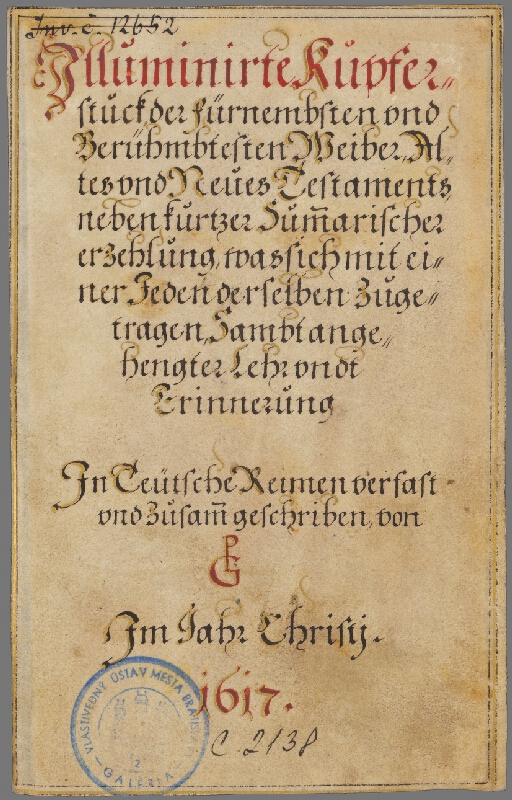 Inv. č. 12652
Illuminirte Kupfer„
stuck der fürnembsten vnd
Berühmbtesten Weiber, Al„
tes vnd Neues Testaments,
neben kurtzer Sum̄arischer
erzehlung, was sich mit ei„
ner Jeden derselben Zuge„
tragen, Sambt ange„
hengter Lehr vndt
Erinnerung
In Teütsche Reimen verfast
vnd Zusam̄ geschriben, von
G
Im Jahr Christj.
1617.
C. 2138
VLASTIVEDNÝ ÚSTAV MESTA BRATISLAVY
2
GALÉRIA